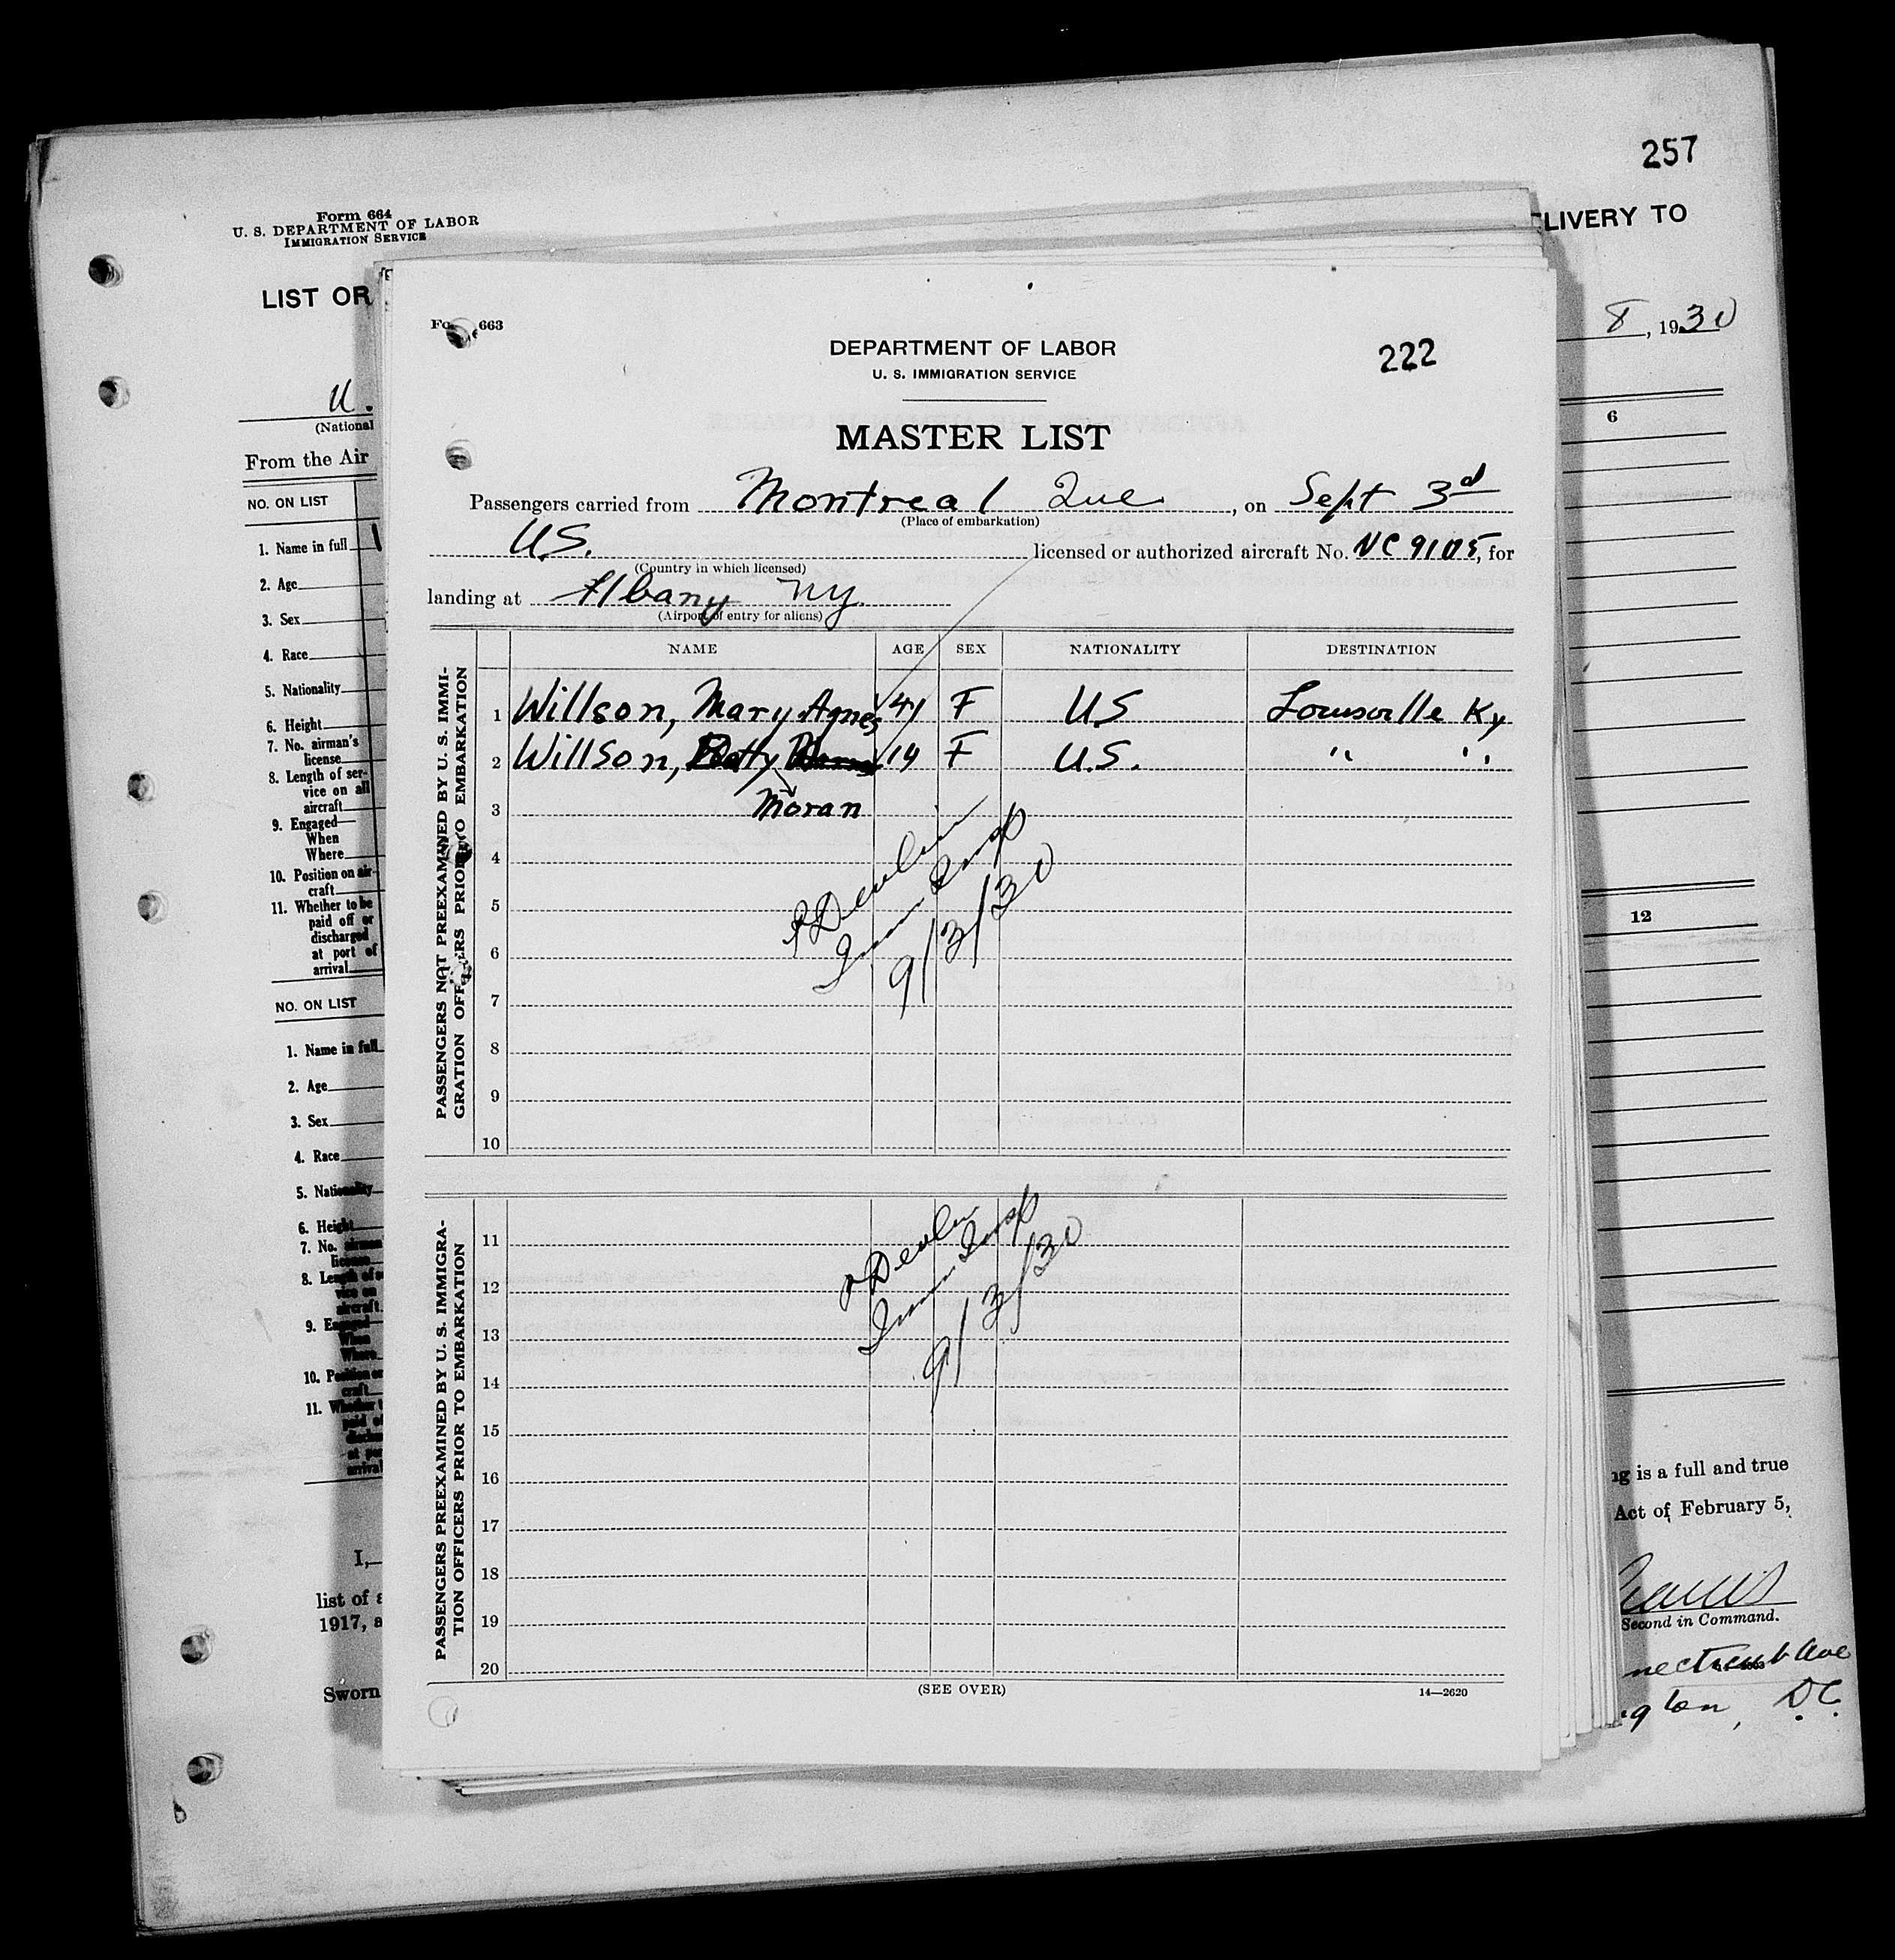 257
Form 664
U. S. DEPARTMENT OF LABOR
IMMIGRATION SERVICE
LIVERY TO
LIST OR
8, 1930
U.
(National
From the Air
NO. ON LIST
1. Name in full
2. Age
3. Sex
4. Race
5. Nationality
6. Height
7. No. airman's
license
8. Length of ser-
vice on all
aircraft
9. Engaged
When
Where
10. Position on air-
craft
11. Whether to be
paid off or
discharged
at port of
arrival
NO. ON LIST
1. Name in full
2. Age
3. Sex
4. Race
5. Nationality
6. Height
7. No. airman
license
8. Length of s
vice on
aircraft
9. Engaged
When
Where
10. Position on
craft
11. Whether t
paid o
discha
at por
arrival
I,
list of a
1917, a
Sworn
6
12
ng is a full and true
Act of February 5,
Second in Command.
necticut Ave
gton, D.C.
663
DEPARTMENT OF LABOR
U. S. IMMIGRATION SERVICE
222
MASTER LIST
Passengers carried from Montreal Que, on Sept 3rd
(Place of embarkation)
U.S. licensed or authorized aircraft No. NC 9105, for
(Country in which licensed)
landing at Albany NY.
(Airport of entry for aliens)
PASSENGERS NOT PREEXAMINED BY U. S. IMMI-
GRATION OFFICERS PRIOR TO EMBARKATION
NAME AGE SEX NATIONALITY DESTINATION
1 Willson, Mary Agnes 41 F US Louisville Ky
2 Willson, Betty 14 F U.S. " "
3 Moran
4
5
6
7
8
9
10
Devlin
Imm Insp
9/3/30
PASSENGERS PREEXAMINED BY U. S. IMMIGRA-
TION OFFICERS PRIOR TO EMBARKATION
11
12
13
14
15
16
17
18
19
20
Devlin
Imm Insp
9/3/30
(SEE OVER)
14—2620